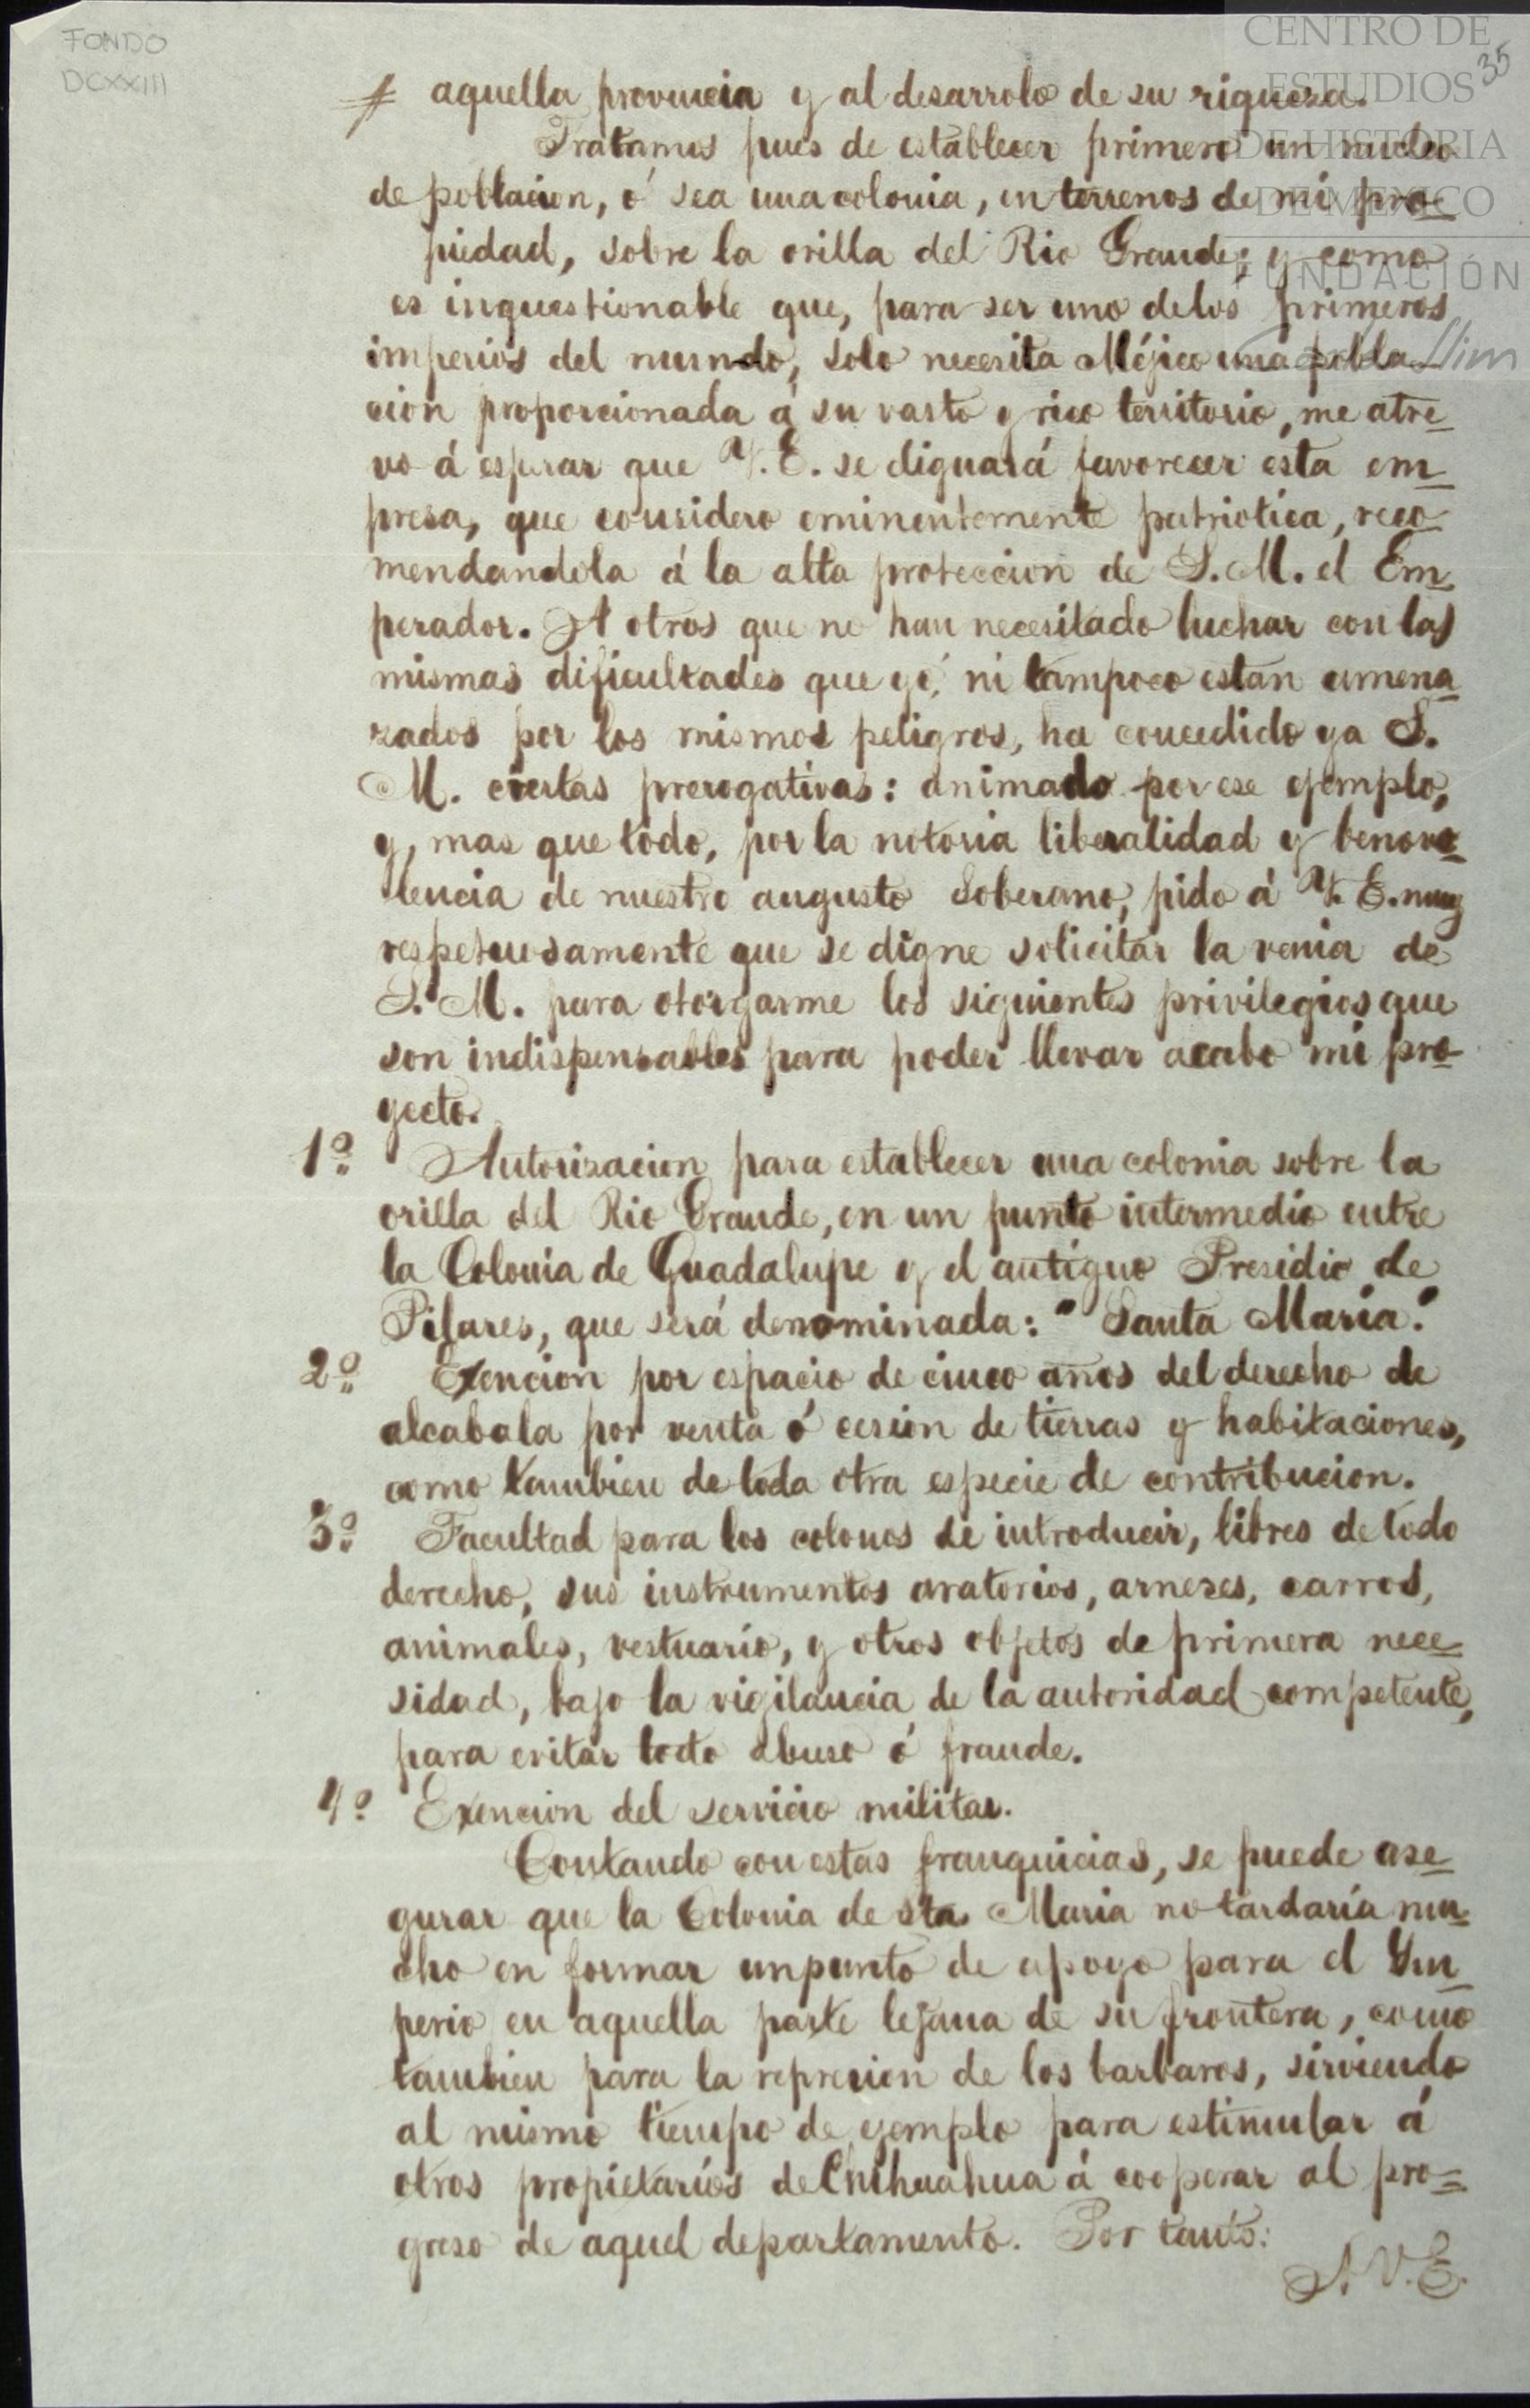 FONDO
DCXXIII
CENTRO DE
ESTUDIOS
DE HISTORIA
DE MÉXICO
FUNDACIÓN
Carlos Slim
35
aquella provincia y al desarrolo de su riqueza.
Tratamos pues de establecer primero un nucleo
de poblacion, ó sea una colonia, en terrenos de mi pro=
piedad, sobre la orilla del Rio Grande; y como
es inquestionable que, para ser uno de los primeros
imperios del mundo, solo necesita Méjico una pobla=
cion proporcionada á su vasto y rico territorio, me atre=
vo á esperar que V. E. se dignará favorecer esta em=
presa, que considero eminentemente patriotica, reco=
mendandola á la alta proteccion de S. M. el Em=
perador. A otros que no han necesitado luchar con las
mismas dificultades que yó, ni tampoco estan amena=
zados por los mismos peligros, ha concedido ya S.
M. ciertas prerogativas: animado por ese ejemplo,
y, mas que todo, por la notoria liberalidad y benovo=
lencia de nuestro augusto Soberano, pido á V. E. muy
respetuosamente que se digne solicitar la venia de
S. M. para otorgarme los siguientes privilegios que
son indispensables para poder llevar acabo mi pro=
yecto.
1º Autorizacion para establecer una colonia sobre la
orilla del Rio Grande, en un punto intermedio entre
la Colonia de Guadalupe y el antiguo Presidio de
Pilares, que será denominada: "Santa Maria."
2º Exencion por espacio de cinco años del derecho de
alcabala por venta ó cesion de tierras y habitaciones,
como tambien de toda otra especie de contribucion.
3º Facultad para los colonos de introducir, libres de todo
derecho, sus instrumentos aratorios, arneses, carros,
animales, vestuario, y otros objetos de primera nece=
sidad, bajo la vigilancia de la autoridad competente,
para evitar todo abuso ó fraude.
4º Exencion del servicio militar.
Contando con estas franquicias, se puede ase=
gurar que la Colonia de Sta. Maria no tardaría mu=
cho en formar un punto de apoyo para el Im=
perio en aquella parte lejana de su frontera, como
tambien para la represion de los barbaros, sirviendo
al mismo tiempo de ejemplo para estimular á
otros propietarios de Chihuahua á cooperar al pro=
greso de aquel departamento. Por tanto:
A V. E.